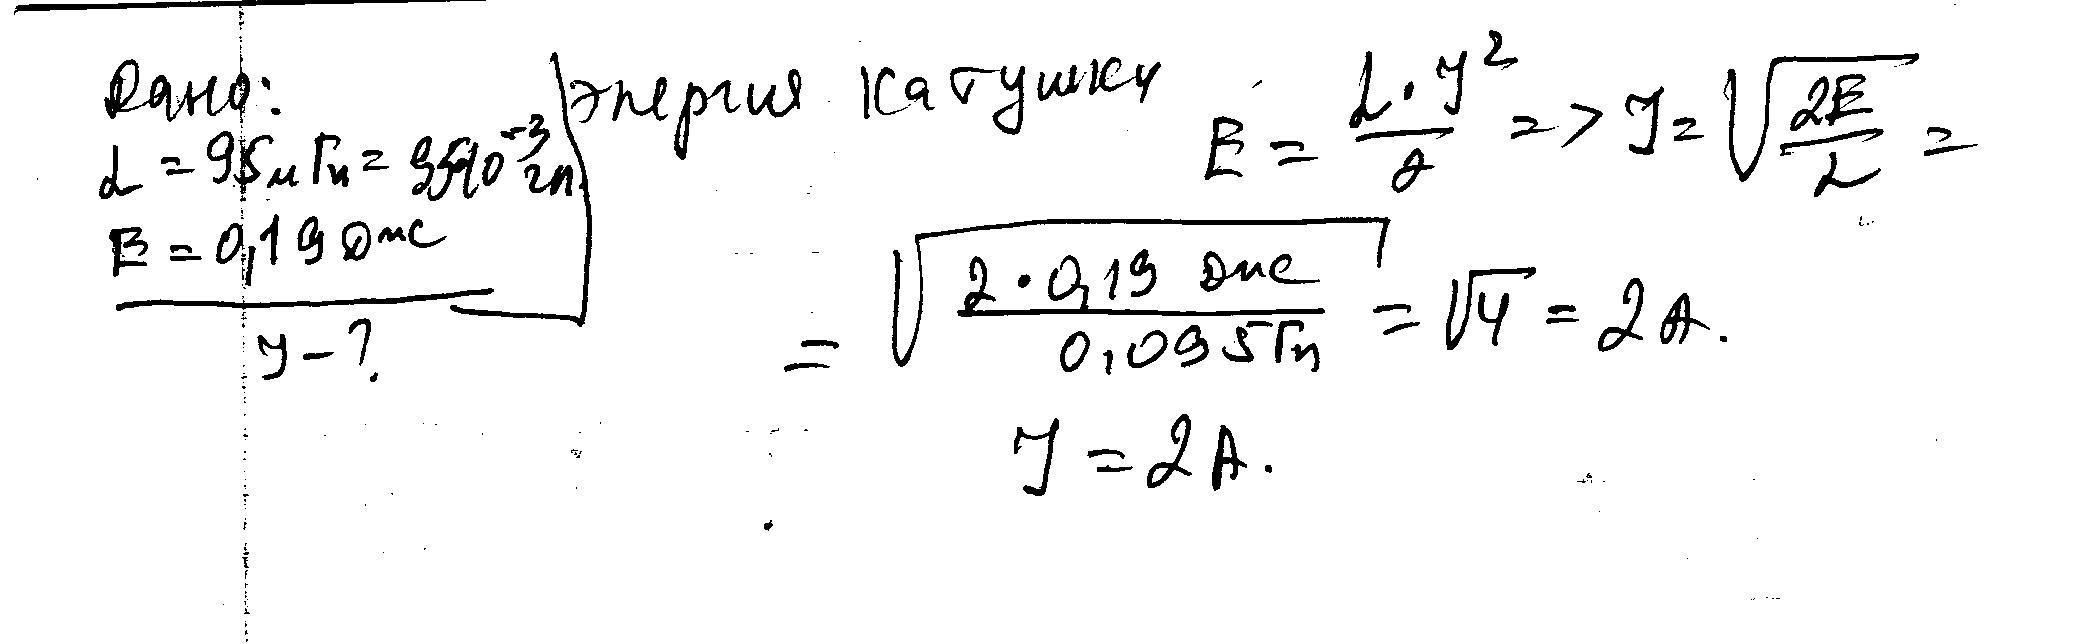 Дано:
L = 95 мГн = 95·10⁻³ Гн
E = 0,19 Дж
J - ?
Энергия катушки E = L·J²/2 => J = √(2E/L) =
= √(2·0,19 Дж / 0,095 Гн) = √4 = 2 А.
J = 2 А.